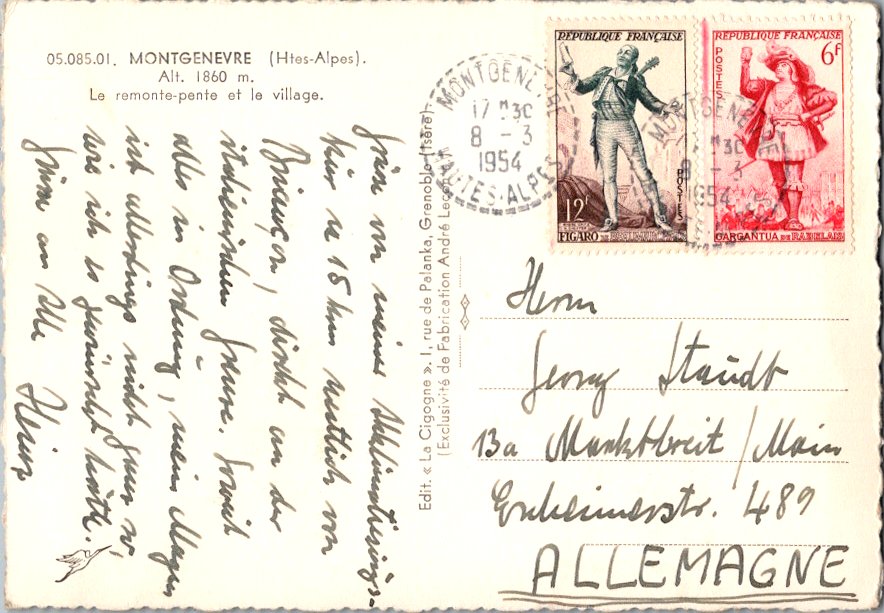 05.085.01. MONTGENEVRE (Htes-Alpes).
Alt. 1860 m.
Le remonte-pente et le village.
Grüße von meiner
15 km von
Briançon, direkt an der
italienischen Grenze. Soweit
alles in Ordnung, mein Magen
ist allerdings nicht ganz so
wie ich es gewünscht hätte.
Grüße an Alle Heinz
Edit. « La Cigogne ». 1, rue de Palanka, Grenoble (Isère).
(Exclusivité de Fabrication André
RÉPUBLIQUE FRANÇAISE
POSTES
12f
FIGARO
RÉPUBLIQUE FRANÇAISE
POSTES
6f
GARGANTUA DE RABELAIS
MONTGENEVRE
17 H30
8 - 3
1954
HAUTES-ALPES
MONTGENEVRE
H30
8 - 3
1954
Herrn
Georg Staudt
13a Marktbreit/Main
Enheimerstr. 489
ALLEMAGNE